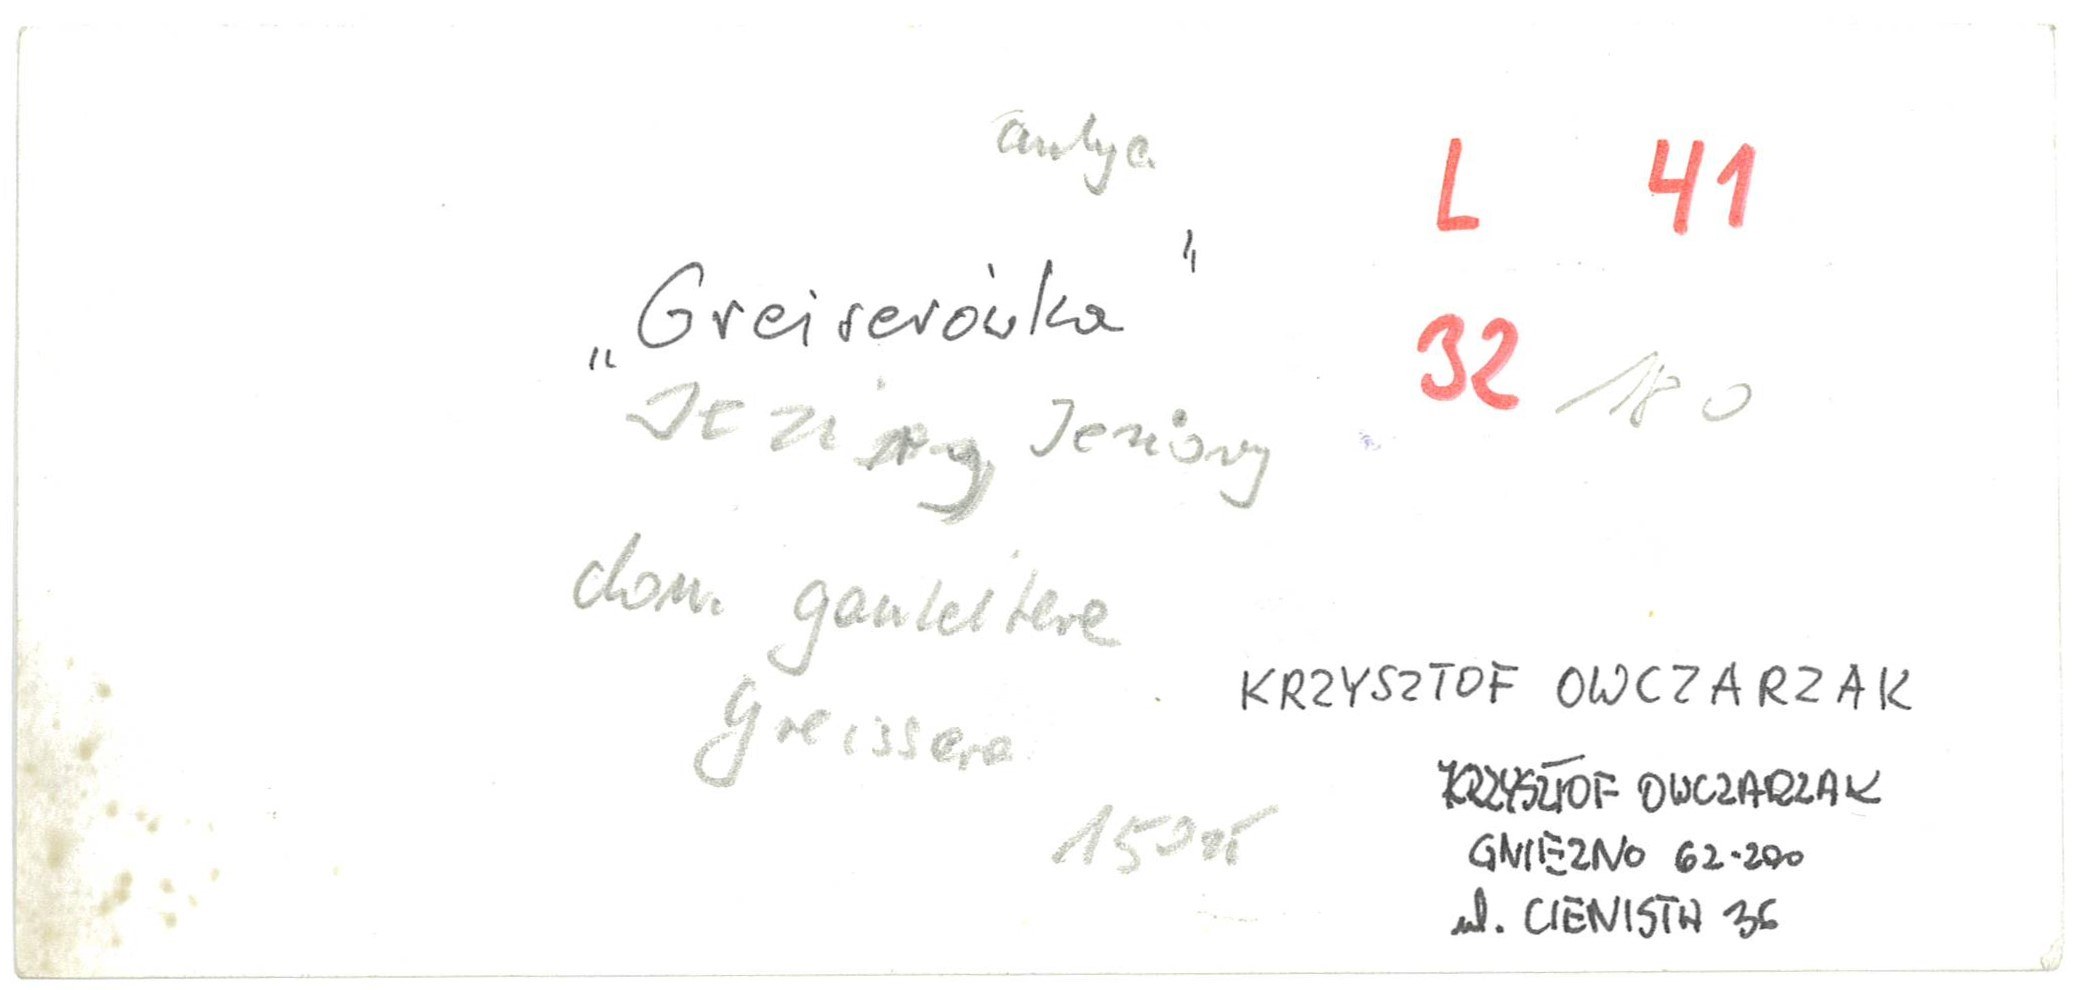 L 41
„Greiserówka”
32 180
Jeziory
dom gauleitera
Greissera
150zł
KRZYSZTOF OWCZARZAK
KRZYSZTOF OWCZARZAK
GNIEZNO 62-200
ul. CIENISTA 36